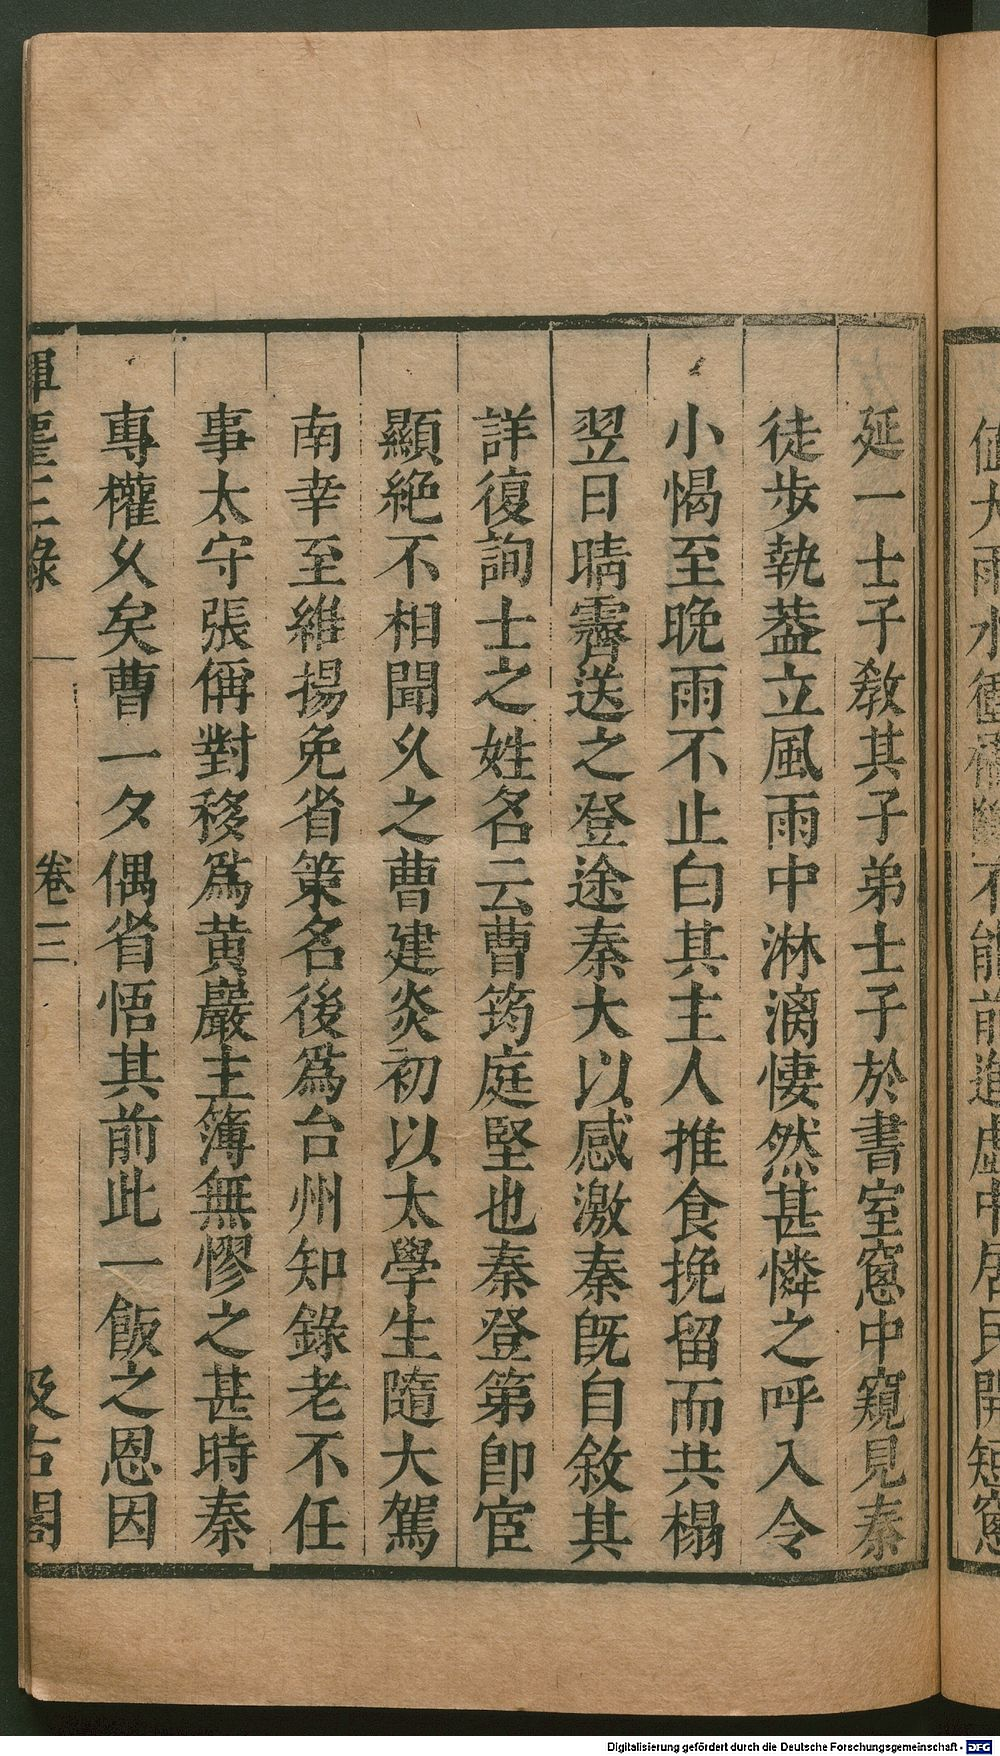 值大雨水衝不能前進虛中居民開短窻
延一士子敎其子弟士子於書室窻中窺見秦
徒步執葢立風雨中淋漓悽然甚憐之呼入令
小愒至晚雨不止白其主人推食挽留而共榻
翌日晴霽送之登途秦大以感激秦旣自敘其
詳復詢士之姓名云曹筠庭堅也秦登第卽宦
顯絶不相聞久之曹建炎初以太學生隨大駕
南幸至維揚免省策名後爲台州知錄老不任
事太守張偁對移爲黄巖主簿無憀之甚時秦
專權久矣曹一夕偶省悟其前此一飯之恩因
揮麈三錄 卷三 汲古閣
Digitalisierung gefördert durch die Deutsche Forschungsgemeinschaft - DFG